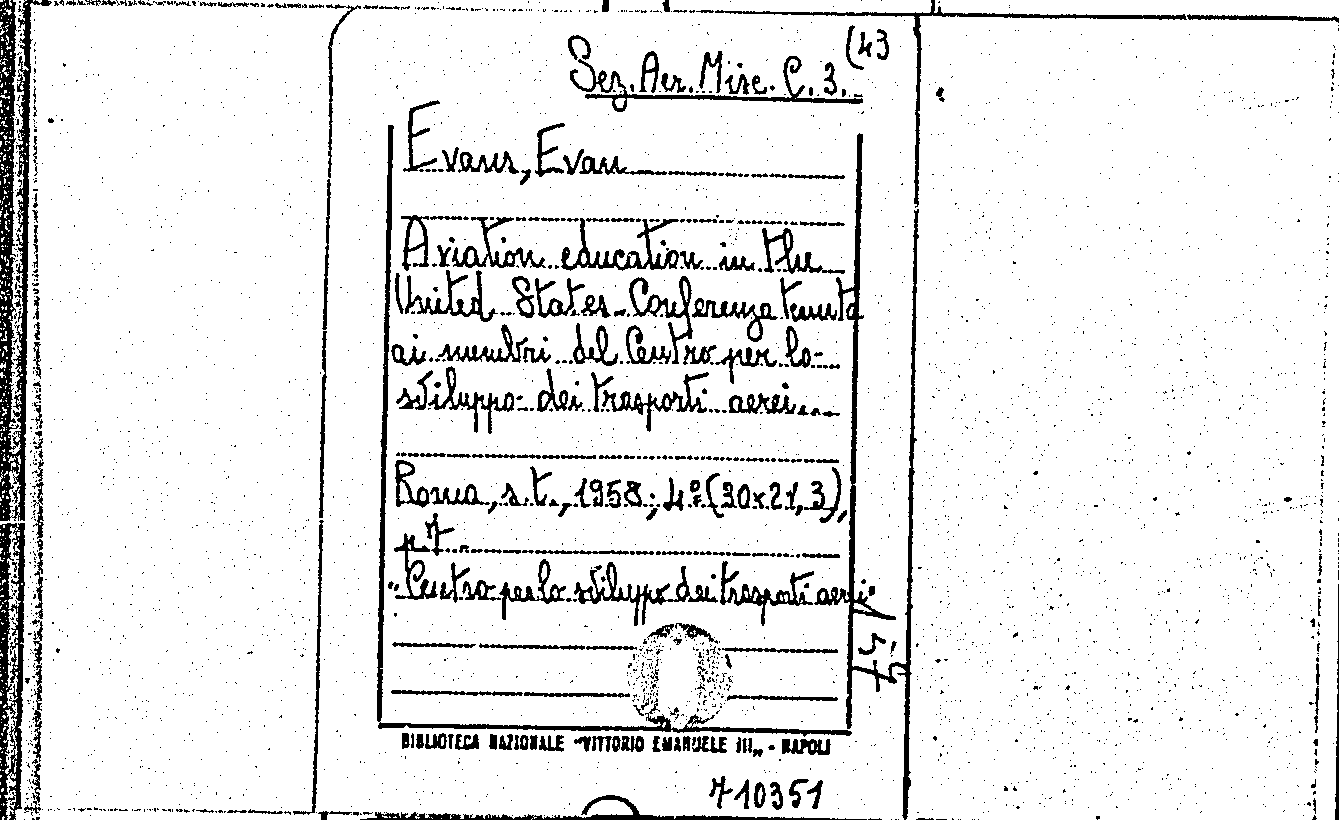 Sez. Aer. Misc. C. 3. (43
Evans, Evan
Aviation education in the
United States. Conferenza tenuta
ai membri del Centro per lo
sviluppo dei trasporti aerei...
Roma, s.t., 1958; 4º (30x21,3),
p. 7.
"Centro per lo sviluppo dei trasporti aerei"
BIBLIOTECA NAZIONALE "VITTORIO EMANUELE III„ - NAPOLI
710351